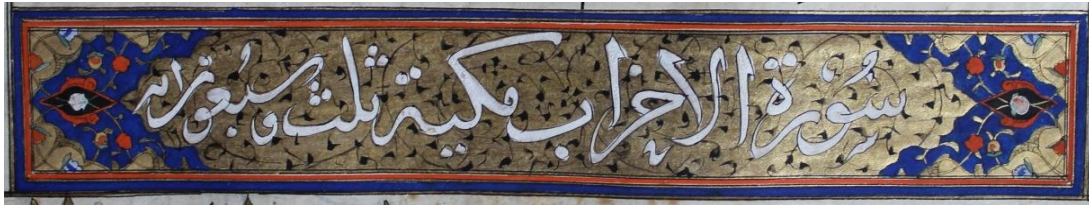 سورة الاحزاب مكية ثلث وسبعون آية